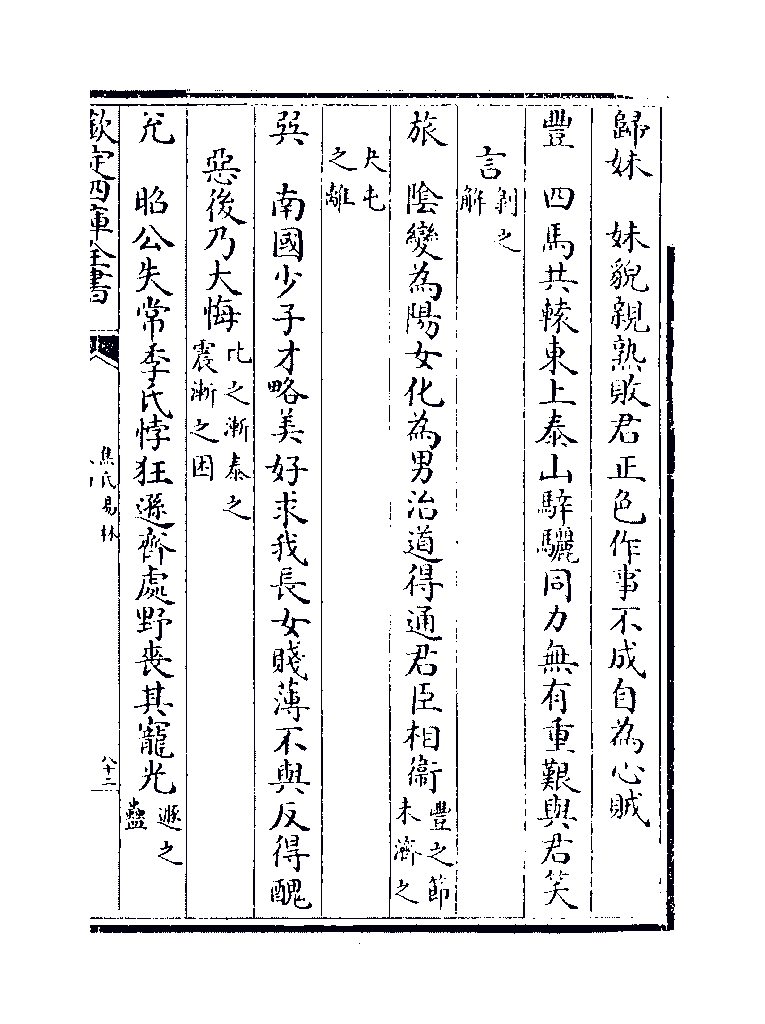 歸妹　妹貌親熟敗君正色作事不成自為心賊
豐　四馬共轅東上泰山騂驪同力無有重艱與君笑
言剝之解
旅　陰變為陽女化為男治道得通君臣相衞豐之節未濟之
大屯之離
巽　南國少子才略美好求我長女賤薄不與反得醜
惡後乃大悔比之漸泰之震漸之困
兊　昭公失常季氏悖狂遜齊處野喪其寵光遯之蠱
欽定四庫全書
焦氏易林
八十二